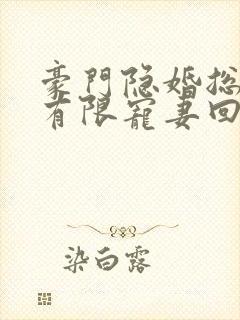 豪門隐婚总
有限寵妻回
染白露